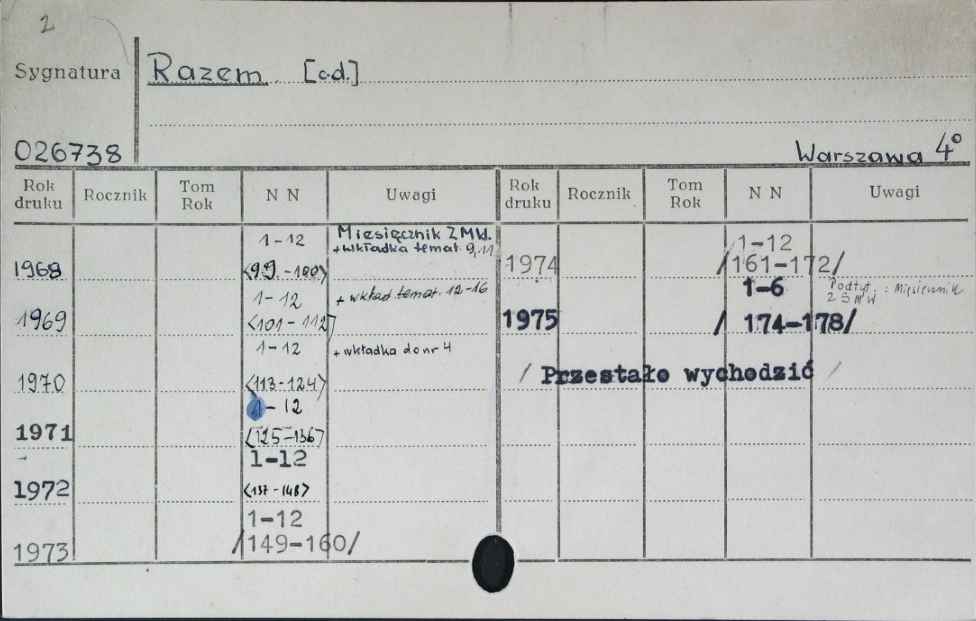 2
Sygnatura Razem [c.d.]
026738 Warszawa 4°
Rok druku Rocznik Tom Rok N N Uwagi Rok druku Rocznik Tom Rok N N Uwagi
1-12 Miesięcznik ZMW.
+wkładka temat. 9, 11
1968 <99.-100>
1-12 + wkład temat. 12-16
1969 <101-112>
1-12 + wkładka do nr 4
1970 <113-124>
1-12
1971 <125-136>
1-12
1972 <137-148>
1-12
1973 /149-160/
1-12
1974 /161-172/
1-6 Podtyt.: Miesięcznik
ZSMW
1975 / 174-178/
/ Przestało wychodzić /